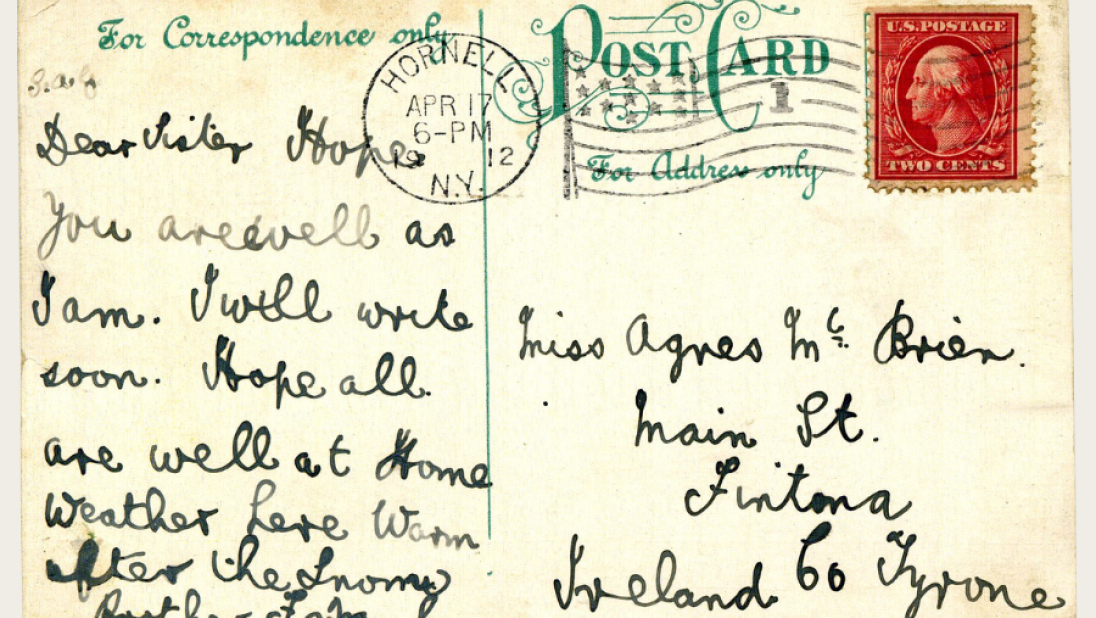 For Correspondence only
POST CARD
For Address only
HORNELL
APR 17
6-PM
1912
N.Y.
1
U.S. POSTAGE
TWO CENTS
Dear Sister Hope
You are well as
I am. I will write
soon. Hope all.
are well at Home
Weather here Warm
After the Snow
Miss Agnes Mc. Brien.
Main St.
Fintona
Ireland Co Tyrone